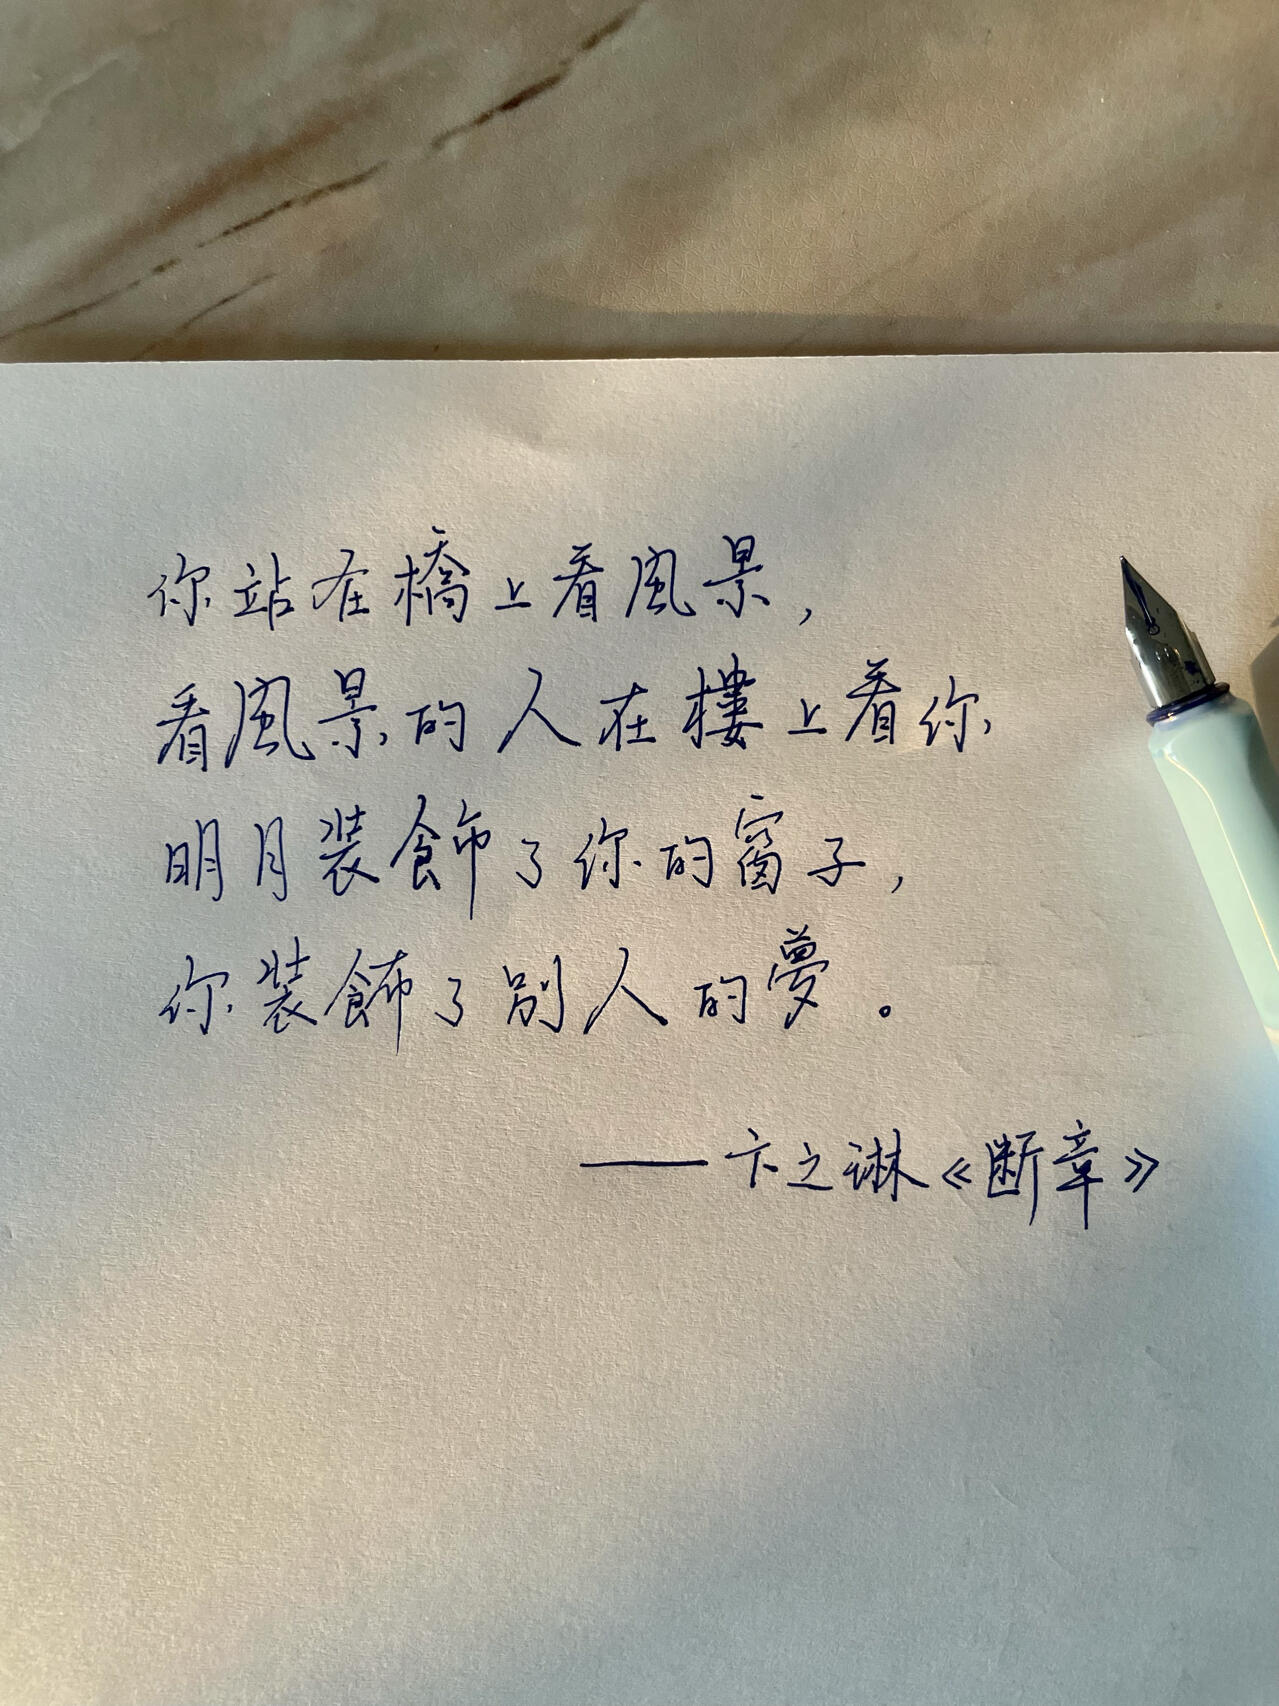 你站在橋上看風景,
看風景的人在樓上看你
明月装飾了你的窗子,
你装飾了别人的夢。
——卞之琳《断章》